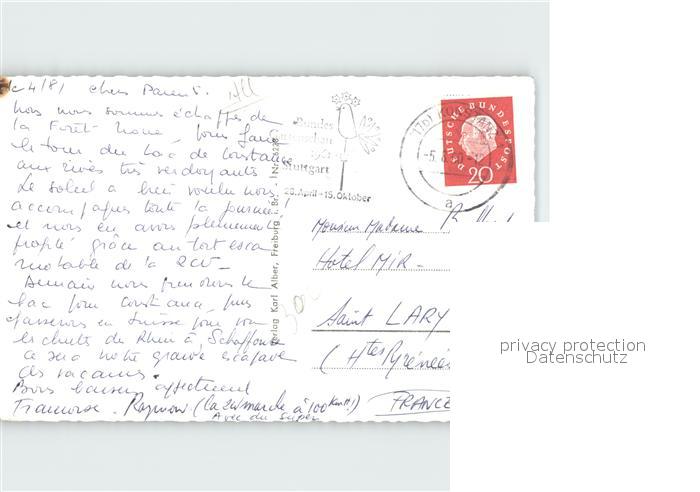 le 4/8/ chers Parents.
Nous nous sommes échappés de
la Forêt-Noire, pour faire
le tour du Lac de Constance
aux rives très verdoyants
Le soleil a bien voulu nous
accompagner toute la journée!
et nous en avons pleinement
profité grâce au toit esca
motable de la 2CV -
Demain nous prendrons le
bac pour Constance, puis
passerons en Suisse pour voir
les chutes du Rhin à Schaffouse
ce sera notre grande escapade
des vacances.
Bons baisers affectueux
Francoise. Raymond (la 2CV marche à 100 km!!!)
Avec du Super
Verlag Karl Alber, Freiburg i. Br.
Bundes
gartenschau
Stuttgart
29. April - 15. Oktober
DEUTSCHE BUNDESPOST
20
a
Monsieur Madame
Hotel MIR -
Saint LARY
(Htes Pyrénées
FRANCE
300
privacy protection
Datenschutz